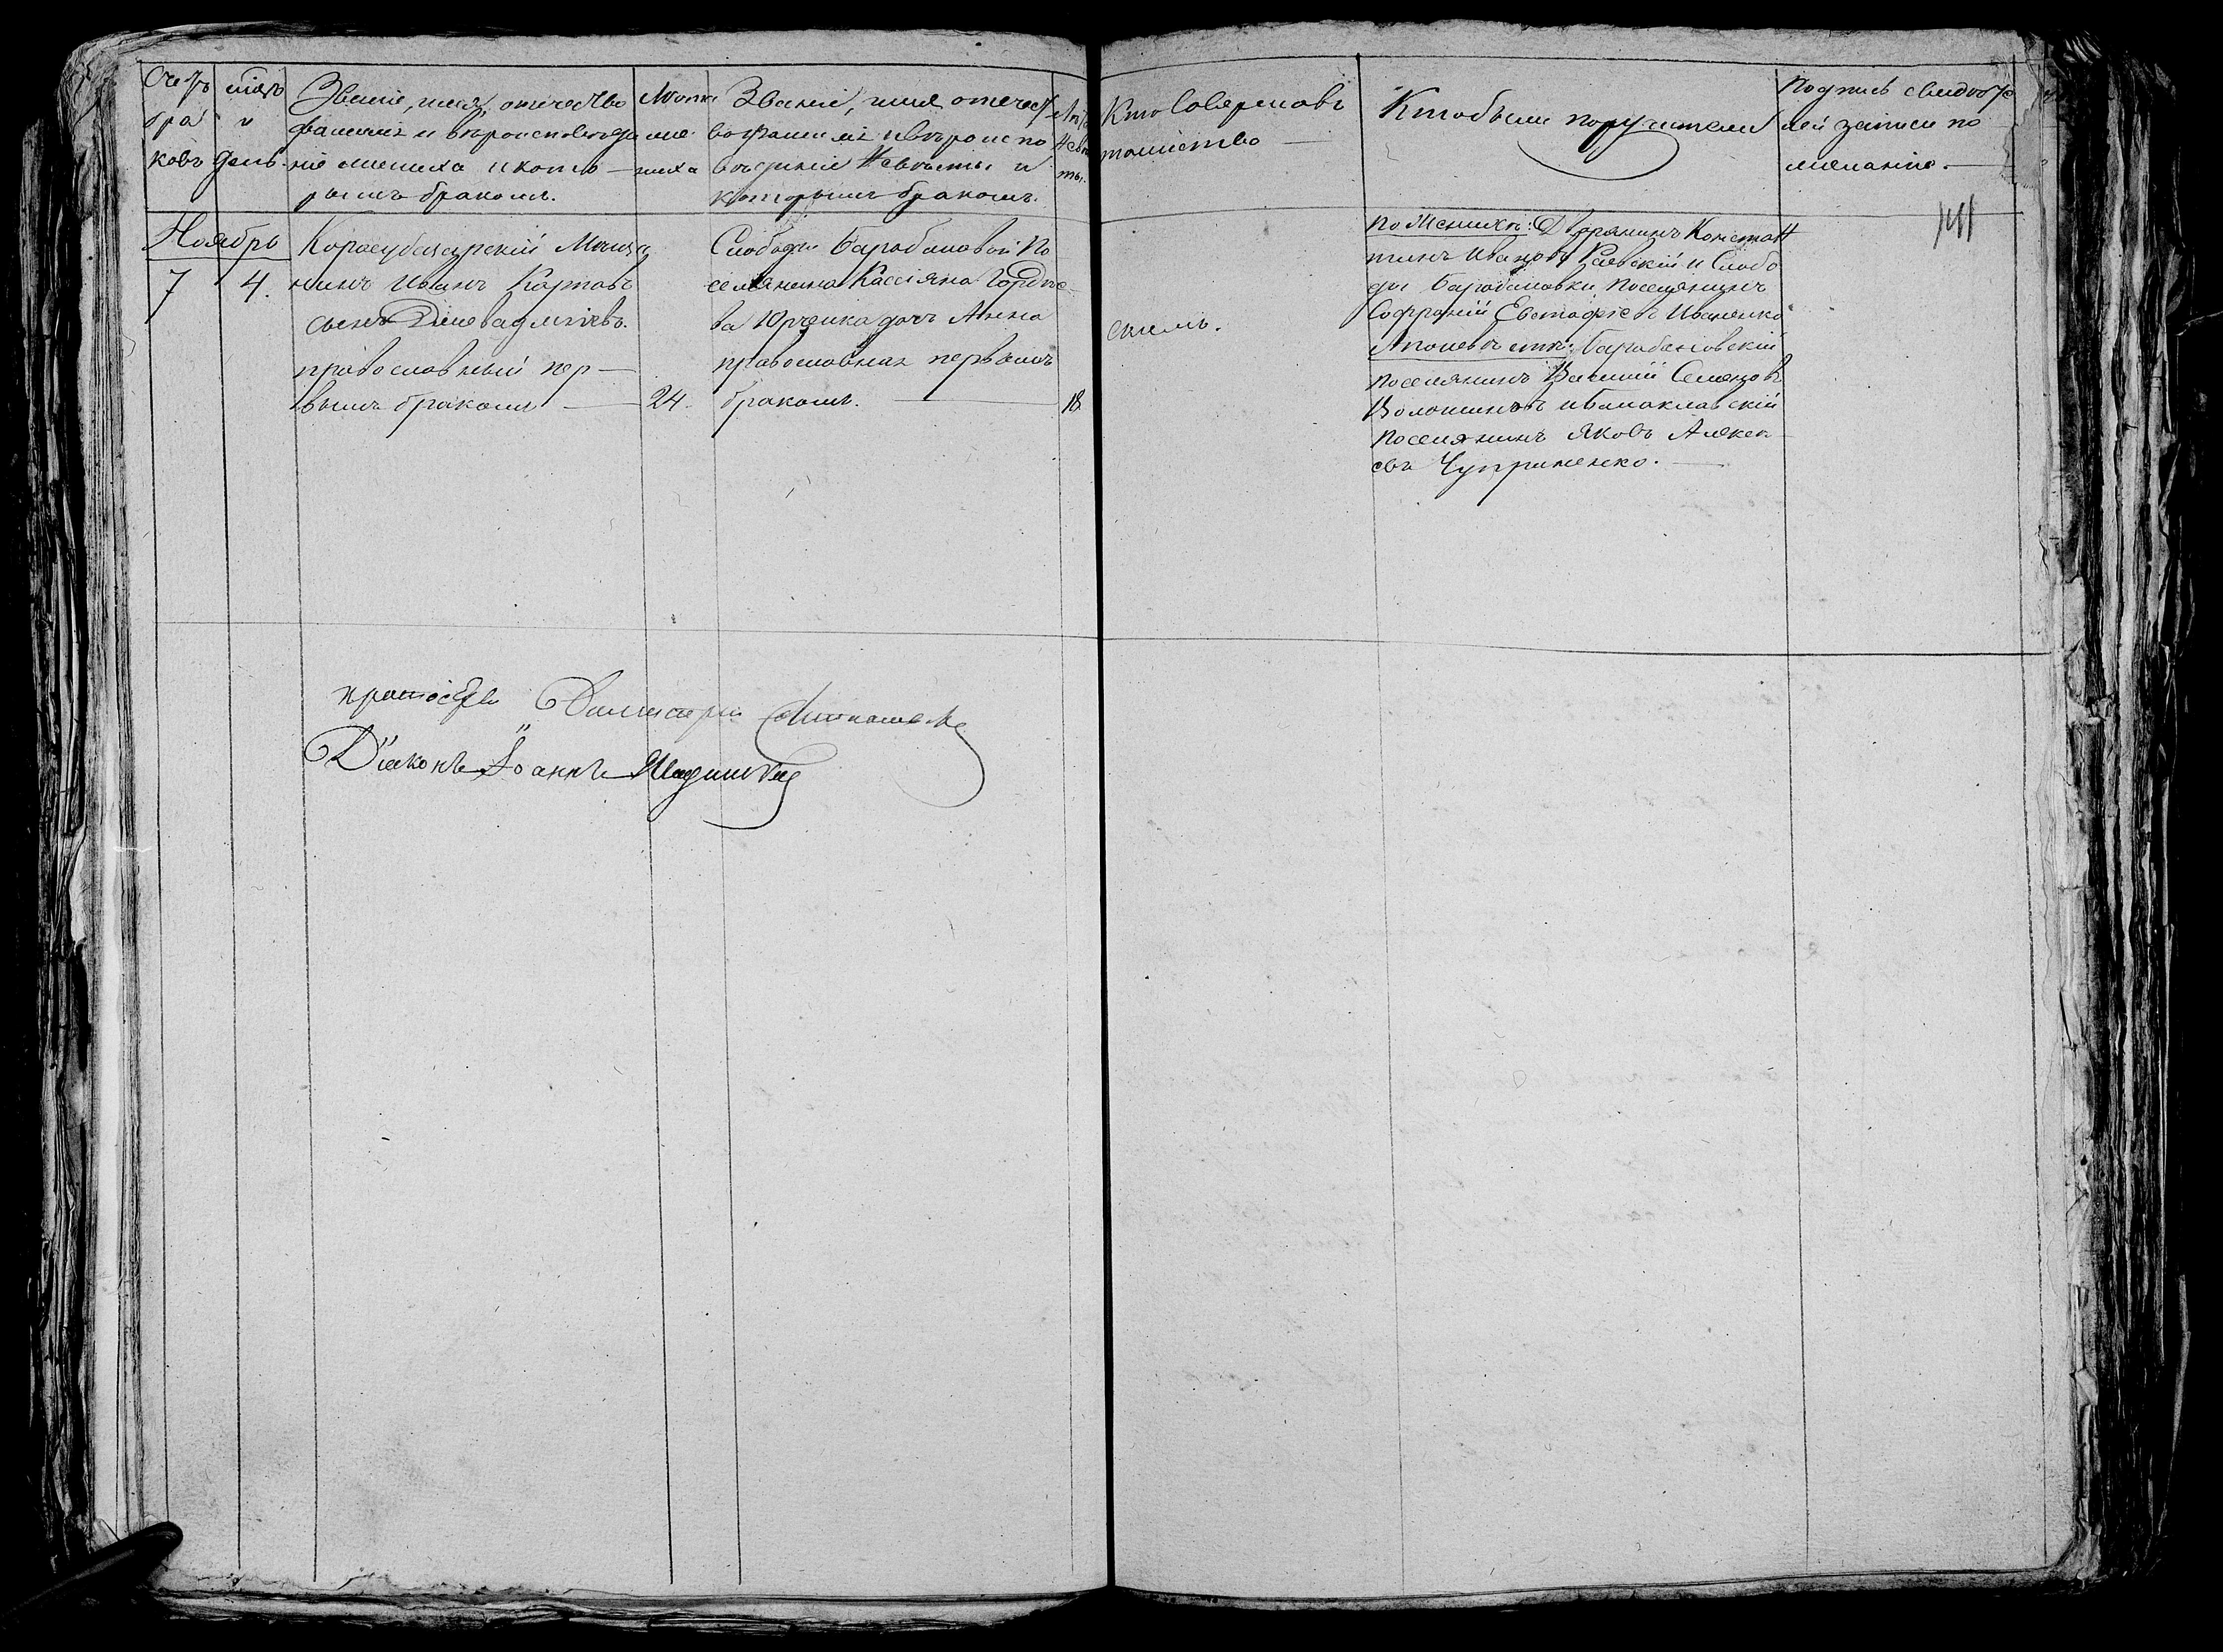 Счетъ
бра
ковъ
мѣсяцъ
и
день.
Званіе, имя, отечество
фамилія и вѣроисповѣда
ніе жениха и кото
рымъ бракомъ.
Лѣта
же
ниха
Званіе, имя отечест
во фамилія и вѣроиспо
вѣданіе невѣсты и
которымъ бракомъ.
Лѣта
невѣс
ты.
Кто Совершалъ
таинство
Кто были поручители
Подпись свидѣте
лей записи по
желанію.
Ноябрь
7
4.
Карасубазарскій Мѣща
нинъ Иванъ Карповъ
сынъ
православный пер
вымъ бракомъ
24.
Слободы Барабановой По
селянина Кассіяна Гордѣе
ва Юрченка дочь Анна
православная первымъ
бракомъ.
18
По Женихѣ: Дворянинъ Констан
тинъ Ивановъ Раевскій и Слобо
ды Барабановки поселянинъ
Софроній Евстафіевъ Иваненко
А по невѣстѣ: Барабановскій
поселянинъ Василій Семеновъ
Волошинъ и балаклавскій
поселянинъ Яковъ Алексѣ
евъ Чуприненко.
141
Діаконъ Іоаннъ